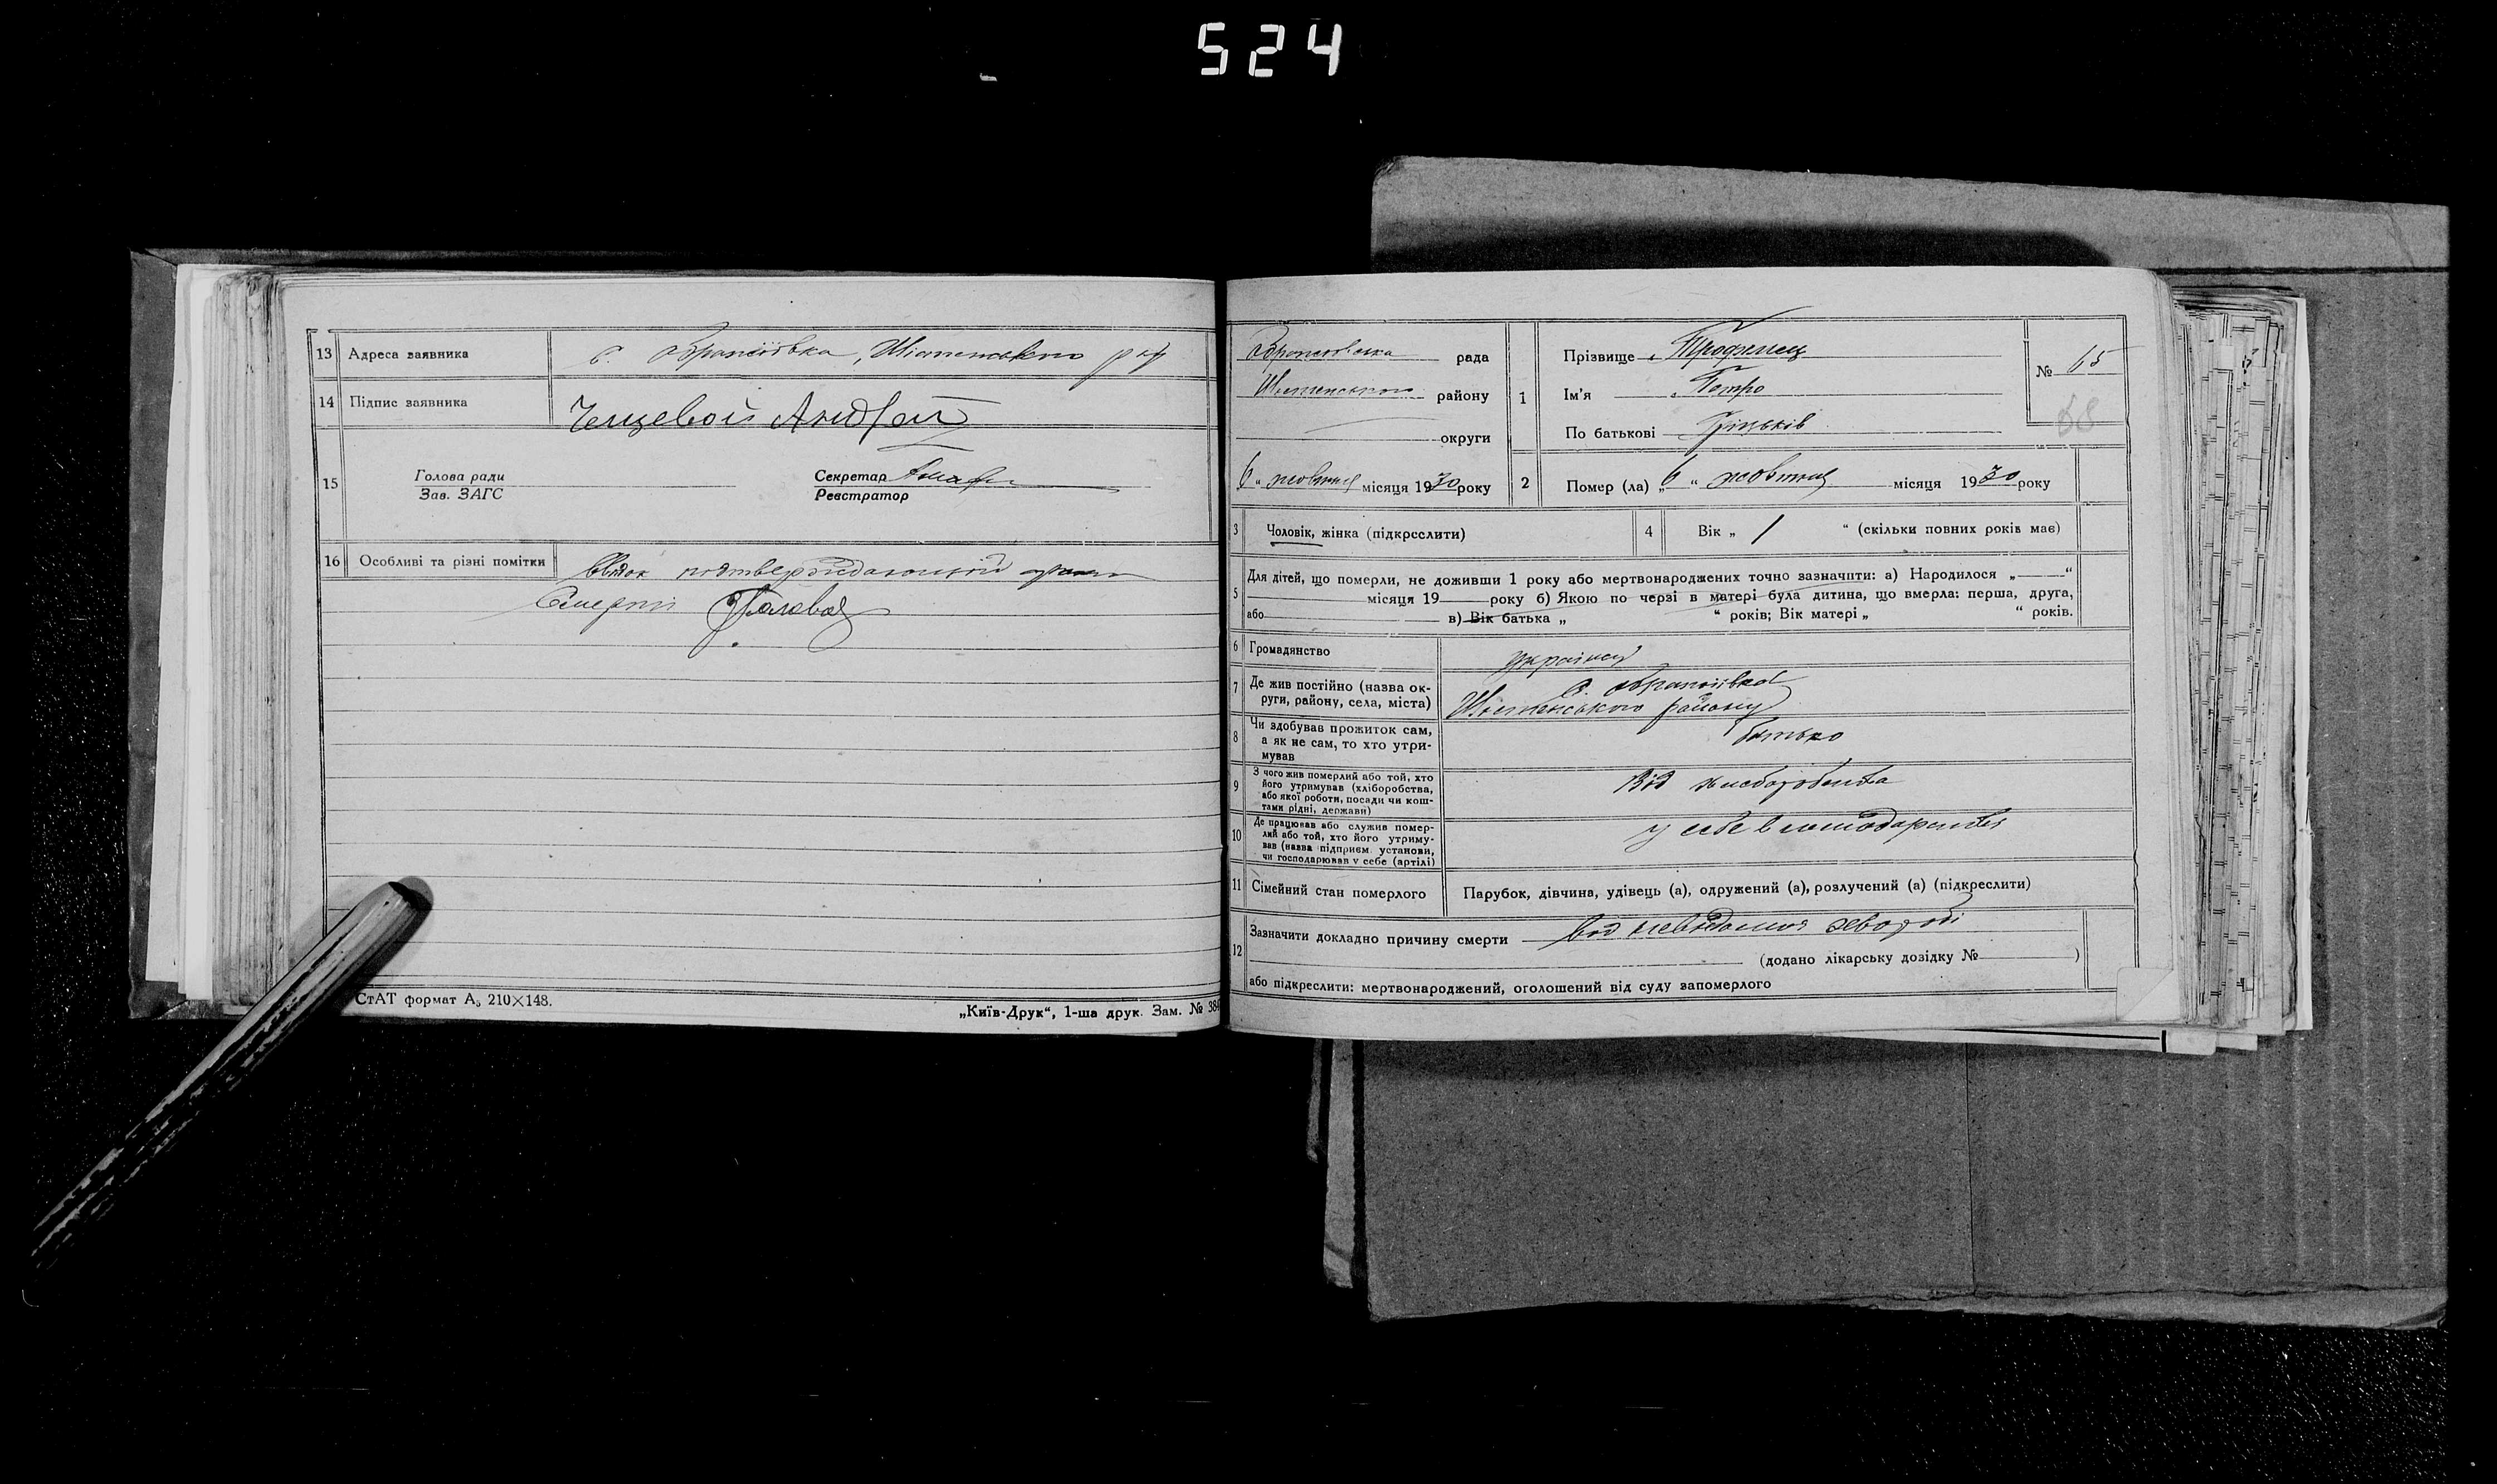 524
13 Адреса заявника с.
14 Підпис заявника Андрей
15 Голова ради
Зав. ЗАГС
Секретар
Реєстратор
16 Особливі та різні помітки
смерти Голова
СтАТ формат А₅ 210×148.
„Київ-Друк“, 1-ша друк. Зам. № 38
рада
району
округи
6 “ жовтня місяця 1930 року
1 Прізвище Трофимец
Ім'я Петро
По батькові Грицьків
№ 65
68
2 Помер (ла) „ 6 “ жовтня місяця 1930 року
3 Чоловік, жінка (підкреслити)
4 Вік „ 1 “ (скільки повних років має)
5 Для дітей, що померли, не доживши 1 року або мертвонароджених точно зазначити: а) Народилося „ “
місяця 19 року б) Якою по черзі в матері була дитина, що вмерла: перша, друга,
або в) Вік батька „ “ років; Вік матері „ “ років.
6 Громадянство
7 Де жив постійно (назва ок-
руги, району, села, міста)
с.
району
8 Чи здобував прожиток сам,
а як не сам, то хто утри-
мував
батько
9 З чого жив померлий або той, хто
його утримував (хліборобства,
або якої роботи, посади чи кош-
тами рідні, держави)
Від хліборобства
10 Де працював або служив помер-
лий або той, хто його утриму-
вав (назва підприєм. установи,
чи господарював у себе (артілі)
у себе в господарстві
11 Сімейний стан померлого Парубок, дівчина, удівець (а), одружений (а), розлучений (а) (підкреслити)
12 Зазначити докладно причину смерти від
(додано лікарську довідку № )
або підкреслити: мертвонароджений, оголошений від суду запомерлого